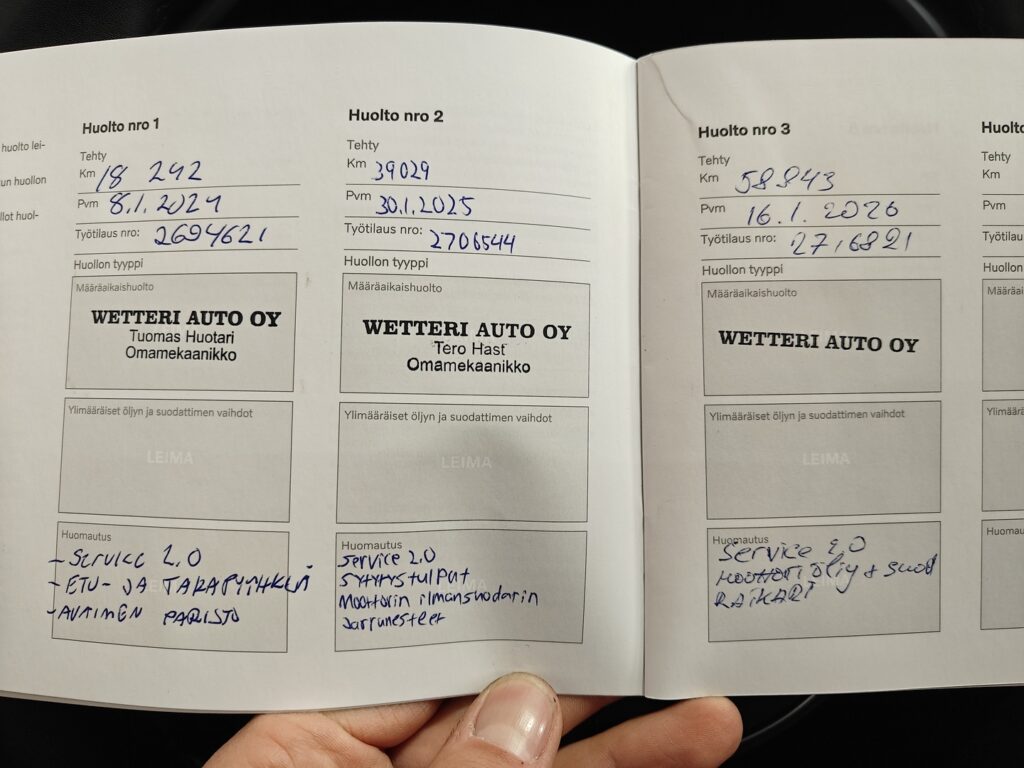 huolto lei-
un huollon
llot huol-
Huolto nro 1
Tehty
Km 18 242
Pvm 8.1.2024
Työtilaus nro: 2694621
Huollon tyyppi
Määräaikaishuolto
WETTERI AUTO OY
Tuomas Huotari
Omamekaanikko
Ylimääräiset öljyn ja suodattimen vaihdot
LEIMA
Huomautus
- Service 2.0
- ETU- JA TAKAPYYHKIJÄ
- AVAIMEN PARISTO
Huolto nro 2
Tehty
Km 39029
Pvm 30.1.2025
Työtilaus nro: 2706544
Huollon tyyppi
Määräaikaishuolto
WETTERI AUTO OY
Tero Hast
Omamekaanikko
Ylimääräiset öljyn ja suodattimen vaihdot
LEIMA
Huomautus
Service 2.0
Sytytystulpat
Moottorin ilmansuodatin
Jarrunesteet
Huolto nro 3
Tehty
Km 58843
Pvm 16.1.2026
Työtilaus nro: 2716821
Huollon tyyppi
Määräaikaishuolto
WETTERI AUTO OY
Ylimääräiset öljyn ja suodattimen vaihdot
LEIMA
Huomautus
Service 2.0
Moottoriöljy + suod
RAIKARI
Huolto
Tehty
Km
Pvm
Työtilau
Huollon
Määräai
Ylimäärä
Huomau